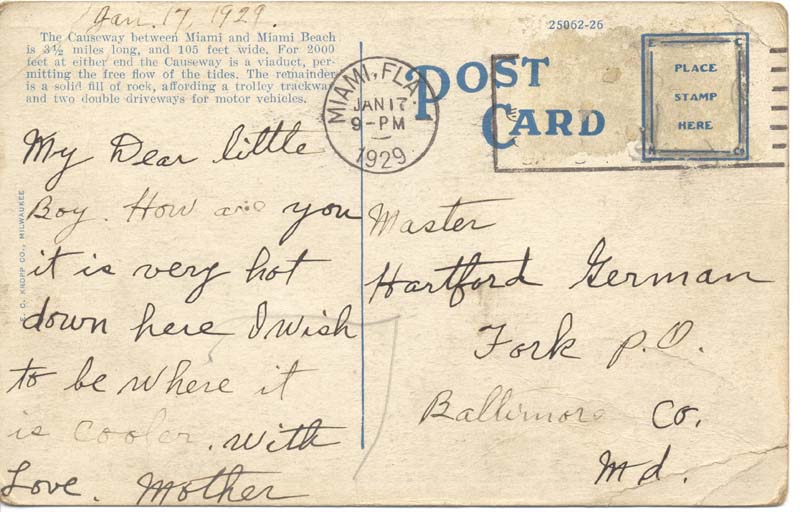 Jan. 17, 1929.
The Causeway between Miami and Miami Beach
is 3½ miles long, and 105 feet wide. For 2000
feet at either end the Causeway is a viaduct, per-
mitting the free flow of the tides. The remainder
is a solid fill of rock, affording a trolley trackway
and two double driveways for motor vehicles.
25062-26
POST
CARD
PLACE
STAMP
HERE
MIAMI, FLA.
JAN 17
9-PM
1929
E. C. KROPP CO., MILWAUKEE
My Dear little
Boy. How are you
it is very hot
down here I wish
to be where it
is cooler. with
Love. Mother
Master
Hartford German
Fork P.O.
Baltimore Co.
Md.